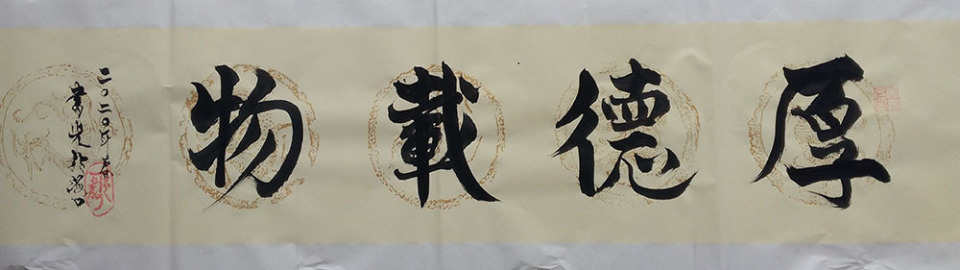 厚德載物
二〇二〇年春